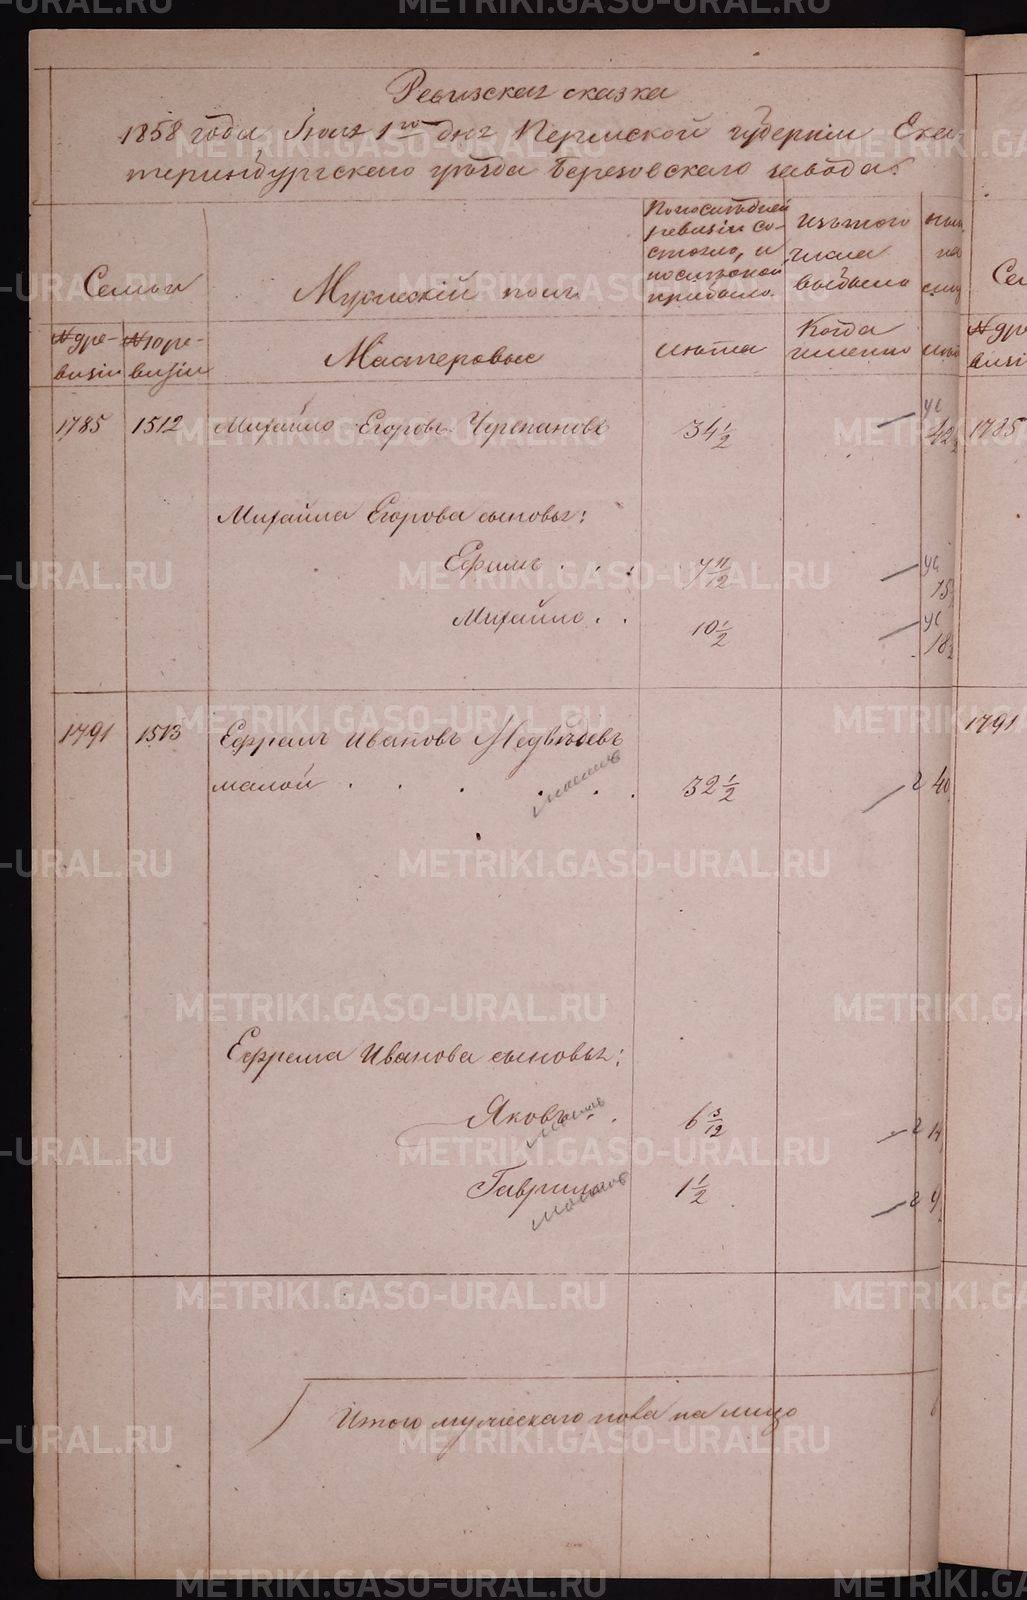 Ревизская сказка
1858 года, Июня 1го дня Пермской губернiи Ека-
теринбургскаго уѣзда Березовскаго завода.
По послѣдней
ревизiи со-
стояло, и
послѣ оной
прибыло.
Изъ того
числа
выбыло
Семьи
Мужескiй полъ
№ 9 ре-
визiи
№ 10 ре-
визiи
Мастеровые
Лѣта
Когда
именно
1785 1512 Михайло Егоровъ Черепановъ 34 1/2 42
Михайла Егорова сыновья:
Ефимъ . . . 7 11/12 15
Михайло . . 10 1/2 18
1791 1513 Ефремъ Ивановъ Медвѣдевъ
малой . . . . . . 32 1/2 40
Ефрема Иванова сыновья:
Яковъ . . 6 3/12 14
Гаврило 1 1/2 9
Итого мужескаго пола на лицо
1785
1791
METRIKI.GASO-URAL.RU